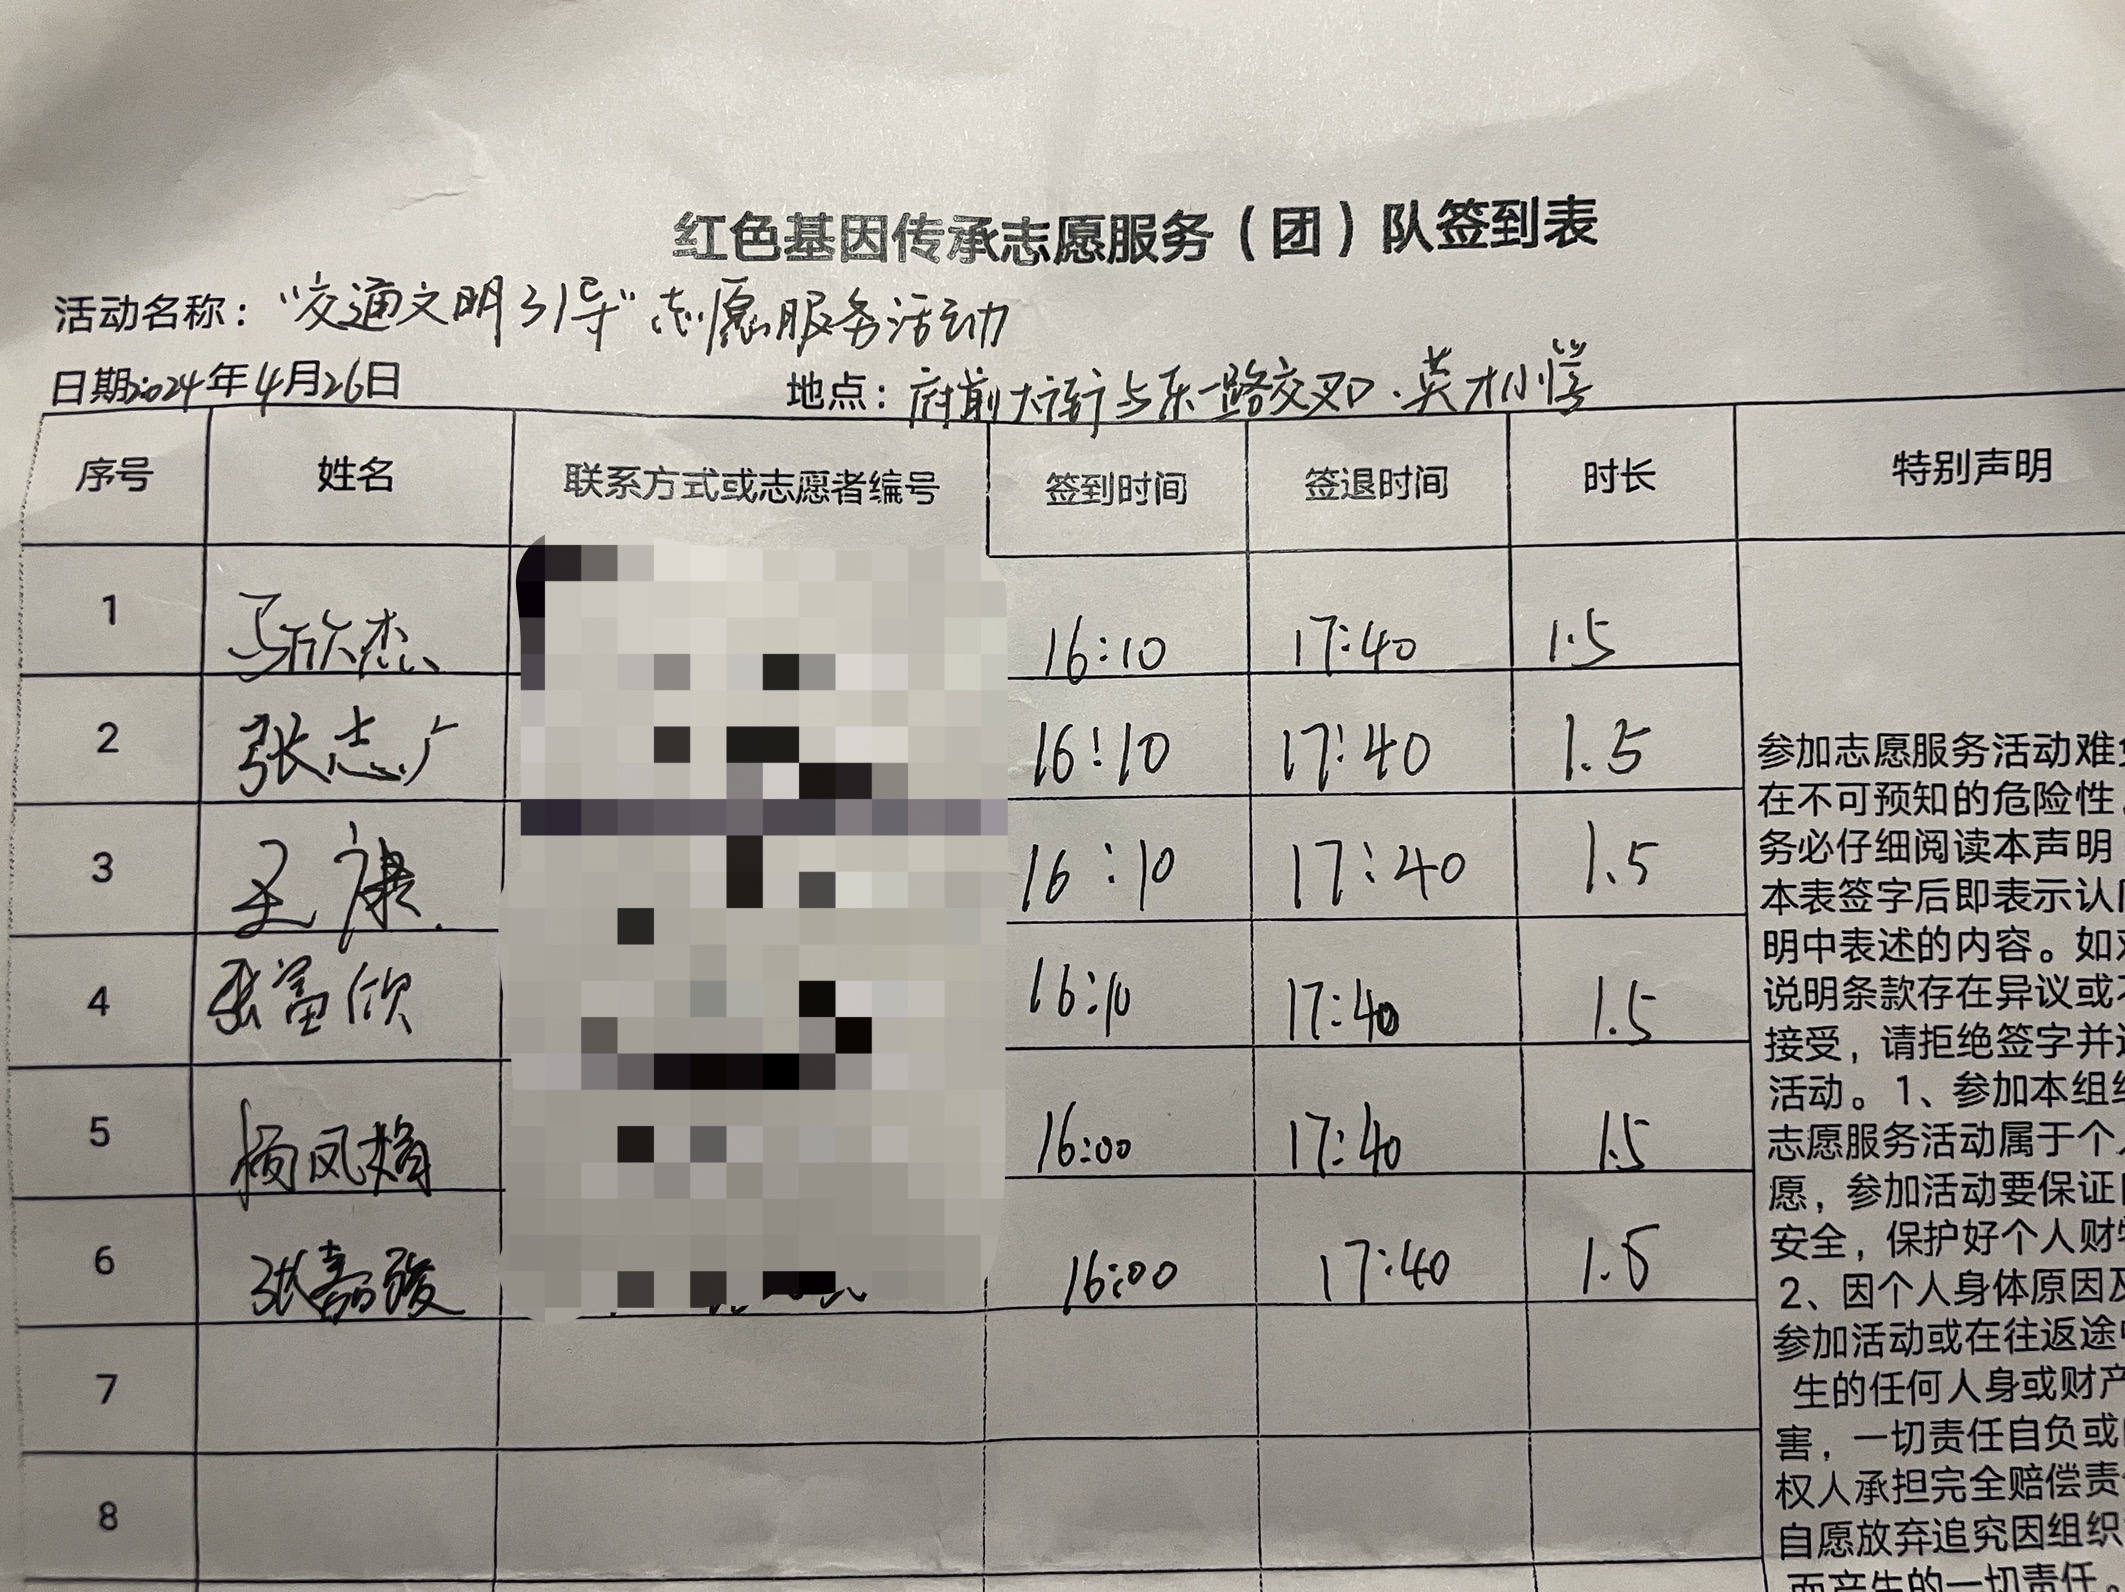 红色基因传承志愿服务（团）队签到表
活动名称："交通文明引导"志愿服务活动
日期2024年4月26日 地点：府前大街与东一路交叉口．英才小学
序号 姓名 联系方式或志愿者编号 签到时间 签退时间 时长 特别声明
1 马欣杰 16:10 17:40 1.5
2 张志广 16:10 17:40 1.5
3 王康 16:10 17:40 1.5
4 张富欣 16:10 17:40 1.5
5 杨凤娟 16:00 17:40 1.5
6 张嘉骏 16:00 17:40 1.5
7
8
参加志愿服务活动难
在不可预知的危险性
务必仔细阅读本声明
本表签字后即表示认
明中表述的内容。如
说明条款存在异议或
接受，请拒绝签字并
活动。1、参加本组
志愿服务活动属于个
愿，参加活动要保证
安全，保护好个人财
2、因个人身体原因
参加活动或在往返途
生的任何人身或财产
害，一切责任自负或
权人承担完全赔偿责
自愿放弃追究因组织
而产生的一切责任